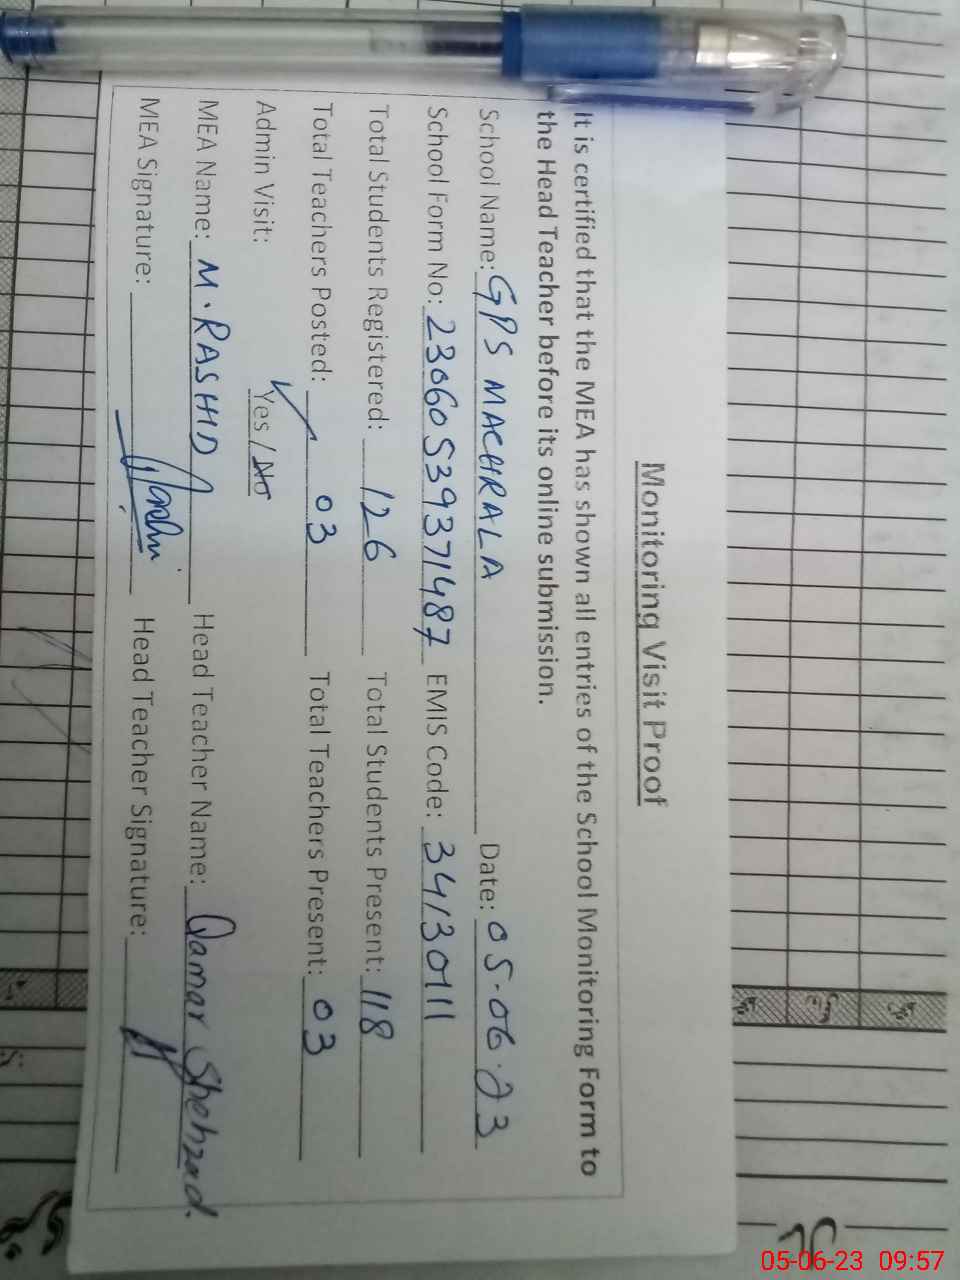 Monitoring Visit Proof
It is certified that the MEA has shown all entries of the School Monitoring Form to
the Head Teacher before its online submission.
School Name: GPS MACHRALA Date: 05.06.23
School Form No: 23060539371487 EMIS Code: 34130111
Total Students Registered: 126 Total Students Present: 118
Total Teachers Posted: 03 Total Teachers Present: 03
Admin Visit: Yes / No
MEA Name: M. RASHID Head Teacher Name: Qamar Shehzad.
MEA Signature: Head Teacher Signature:
05-06-23 09:57